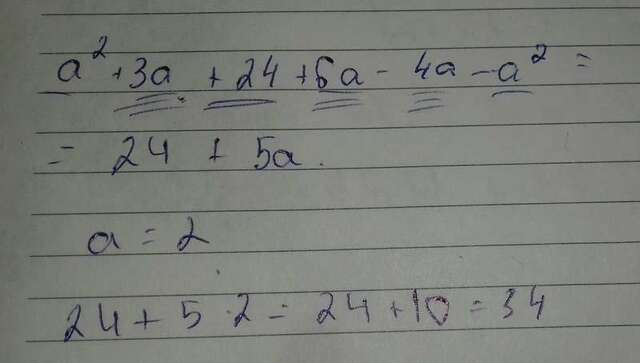 a² + 3a + 24 + 6a - 4a - a² =
= 24 + 5a.
a = 2
24 + 5 · 2 = 24 + 10 = 34